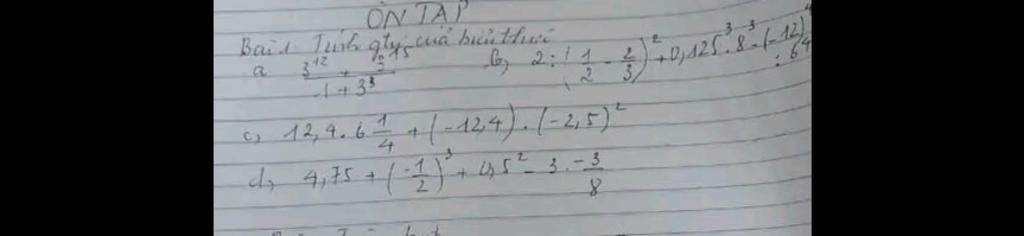 ÔN TẬP
Bài 1. Tính gtrị của biểu thức
a (3^12 + 3^15)/(1 + 3^3)  b, 2 : (1/2 - 2/3)^2 + 0,125^3 . 8^3 - (-12)^4 : 6^4
c, 12,4 . 6 1/4 + (-12,4) . (-2,5)^2
d, 4,75 + (-1/2)^3 + 0,5^2 - 3 . -3/8